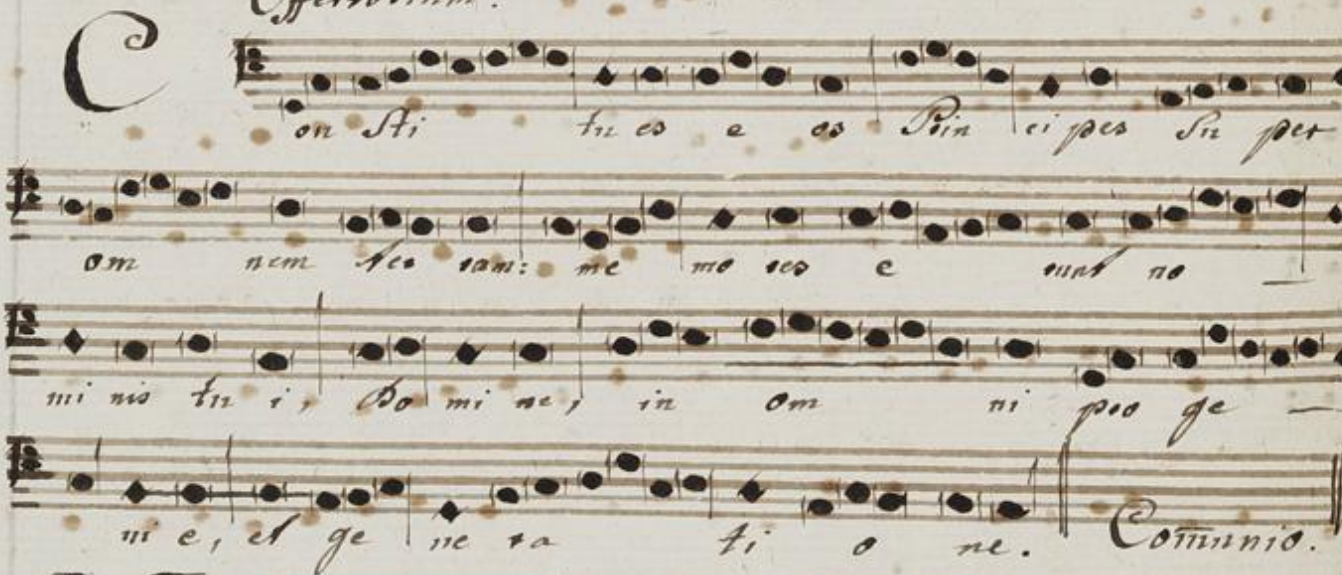 Offertorium.
C on sti tu es e os Prin ci pes Su per
om nem ter ram: me mo res e runt no —
mi nis tu i, Do mi ne, in om ni pro ge —
ni e, et ge ne ra ti o ne. Com̄unio.